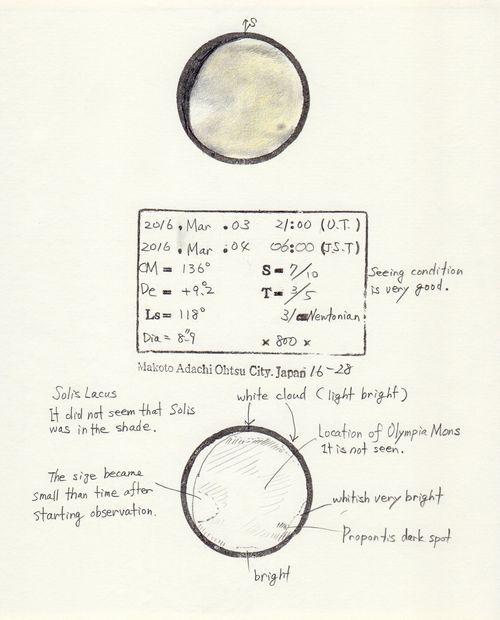 S
2016. Mar .03 21:00 (U.T.)
2016. Mar .04 06:00 (J.S.T)
CM = 136° S = 7/10
De = +9.2° T = 3/5
Ls = 118° 31 Newtonian
Dia = 8.9" × 800 ×
Seeing condition
is very good.
Makoto Adachi Ohtsu City. Japan 16-28
Solis Lacus
It did not seem that Solis
was in the shade.
white cloud (light bright)
Location of Olympia Mons
It is not seen.
The size became
small than time after
starting observation.
whitish very bright
Propontis dark spot
bright